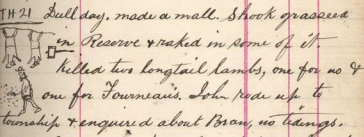 TH 21 Dull day, made a mall. Shook grasseed
in Reserve & raked in some of it.
Killed two longtail lambs, one for no &
one for Fourneaus. John rode up to
township & enquired about Bran, no tidings.